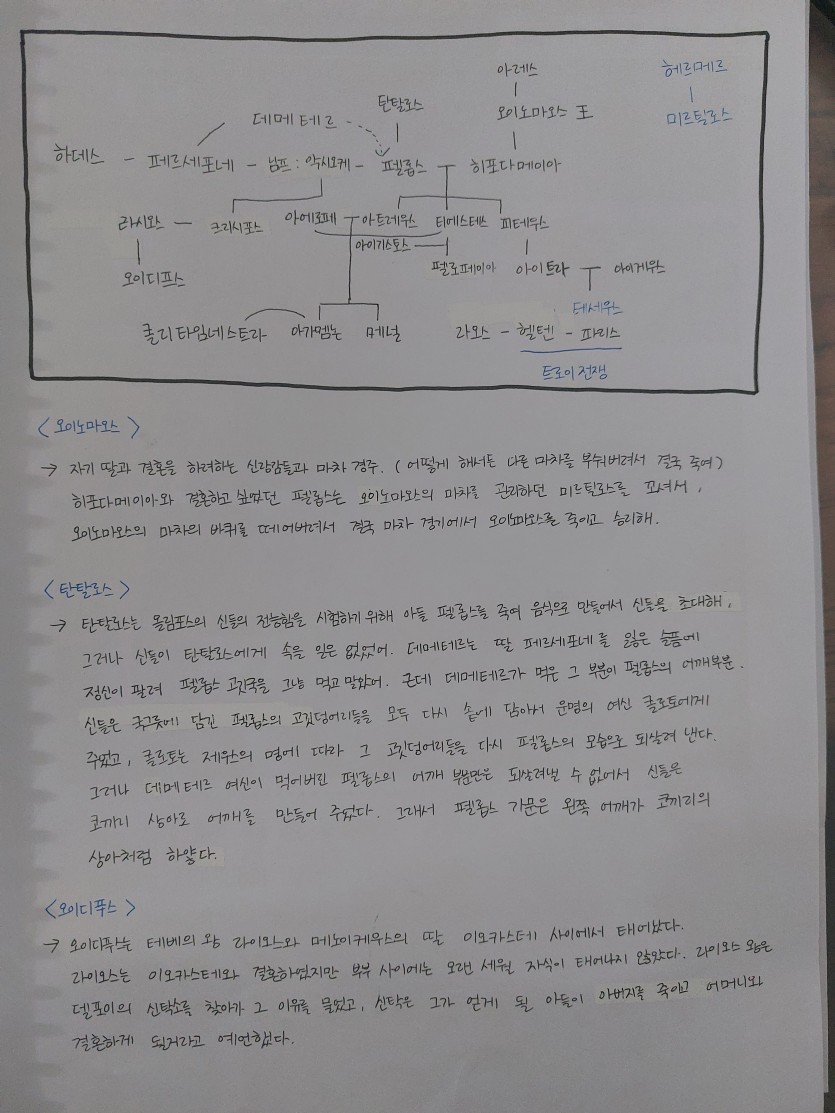 아레스
헤르메르
데메테르
탄탈로스
오이노마오스 王
미르틸로스
하데스 - 페르세포네 - 님프 : 악시오케 - 펠롭스
히포다메이아
라시오스 - 크리시포스
아에로페
아트레우스
티에스테스
피테우스
아이기스토스
펠로페이아
오이디프스
아이트라
아이게우스
테세우스
클리타임네스트라
아가멤논
메널
라오스 - 헬텐 - 파리스
트로이 전쟁
<오이노마오스>
→ 자기 딸과 결혼을 하려하는 신랑감들과 마차 경주. (어떻게 해서든 다른 마차를 부숴버려서 결국 죽여)
히포다메이아와 결혼하고 싶었던 펠롭스는 오이노마오스의 마차를 관리하던 미르틸로스를 꼬셔서,
오이노마오스의 마차의 바퀴를 떼어버려서 결국 마차 경기에서 오이노마오스를 죽이고 승리해.
<탄탈로스>
→ 탄탈로스는 올림포스의 신들의 전능함을 시험하기 위해 아들 펠롭스를 죽여 음식으로 만들어서 신들을 초대해,
그러나 신들이 탄탈로스에게 속을 일은 없었어. 데메테르는 딸 페르세포네를 잃은 슬픔에
정신이 팔려 펠롭스 고깃국을 그냥 먹고 말았어. 근데 데메테르가 먹은 그 부분이 펠롭스의 어깨부분.
신들은 국그릇에 담긴 펠롭스의 고깃덩어리들을 모두 다시 솥에 담아서 운명의 여신 클로토에게
주었고, 클로토는 제우스의 명에 따라 그 고깃덩어리들을 다시 펠롭스의 모습으로 되살려 낸다.
그러나 데메테르 여신이 먹어버린 펠롭스의 어깨 부분만은 되살려낼 수 없어서 신들은
코끼리 상아로 어깨를 만들어 주었다. 그래서 펠롭스 가문은 왼쪽 어깨가 코끼리의
상아처럼 하얗다.
<오이디푸스>
→ 오이디푸스는 테베의 왕 라이오스와 메노이케우스의 딸 이오카스테 사이에서 태어났다.
라이오스는 이오카스테와 결혼하였지만 부부 사이에는 오랜 세월 자식이 태어나지 않았다. 라이오스 왕은
델포이의 신탁소를 찾아가 그 이유를 물었고, 신탁은 그가 얻게 될 아들이 아버지를 죽이고 어머니와
결혼하게 될거라고 예언했다.